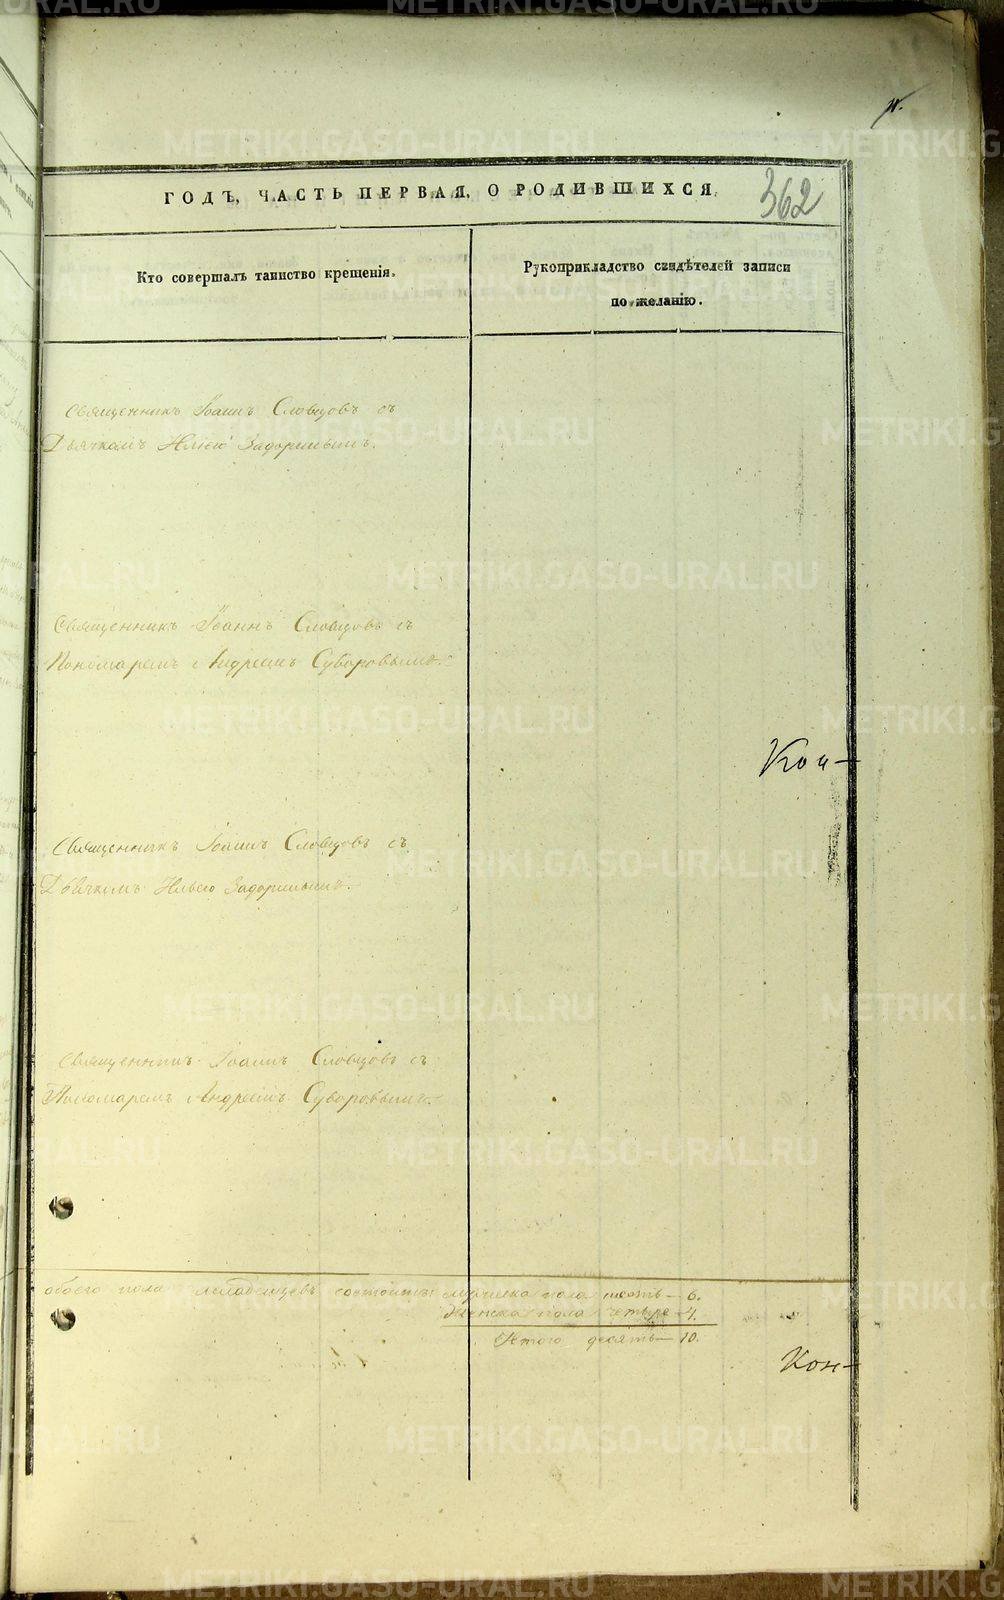 ГОДЪ, ЧАСТЬ ПЕРВАЯ, О РОДИВШИХСЯ,
362
Кто совершалъ таинство крещенія.
Рукоприкладство свидѣтелей записи
по желанію.
Священникъ Іоаннъ Словцовъ съ
Дьячкомъ Иліею
Священникъ Іоаннъ Словцовъ съ
Пономаремъ Андреемъ Суворовымъ.
Кон-
Священникъ Іоаннъ Словцовъ съ
Дьячкомъ Ильею
Священникъ Іоаннъ Словцовъ съ
Пономаремъ Андреемъ Суворовымъ.
обоего пола младенцевъ состоитъ: мужеска пола шесть - 6.
женска пола четыре - 4.
Итого десять - 10.
Кон-
METRIKI.GASO-URAL.RU